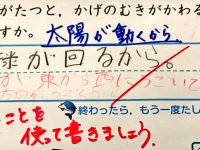 がたつと、かげのむきがかわる
すか。太陽が動くから。
球が回るから。
が東から西にうごいて
ことを 終わったら、もう一度たし
使って書きましょう。